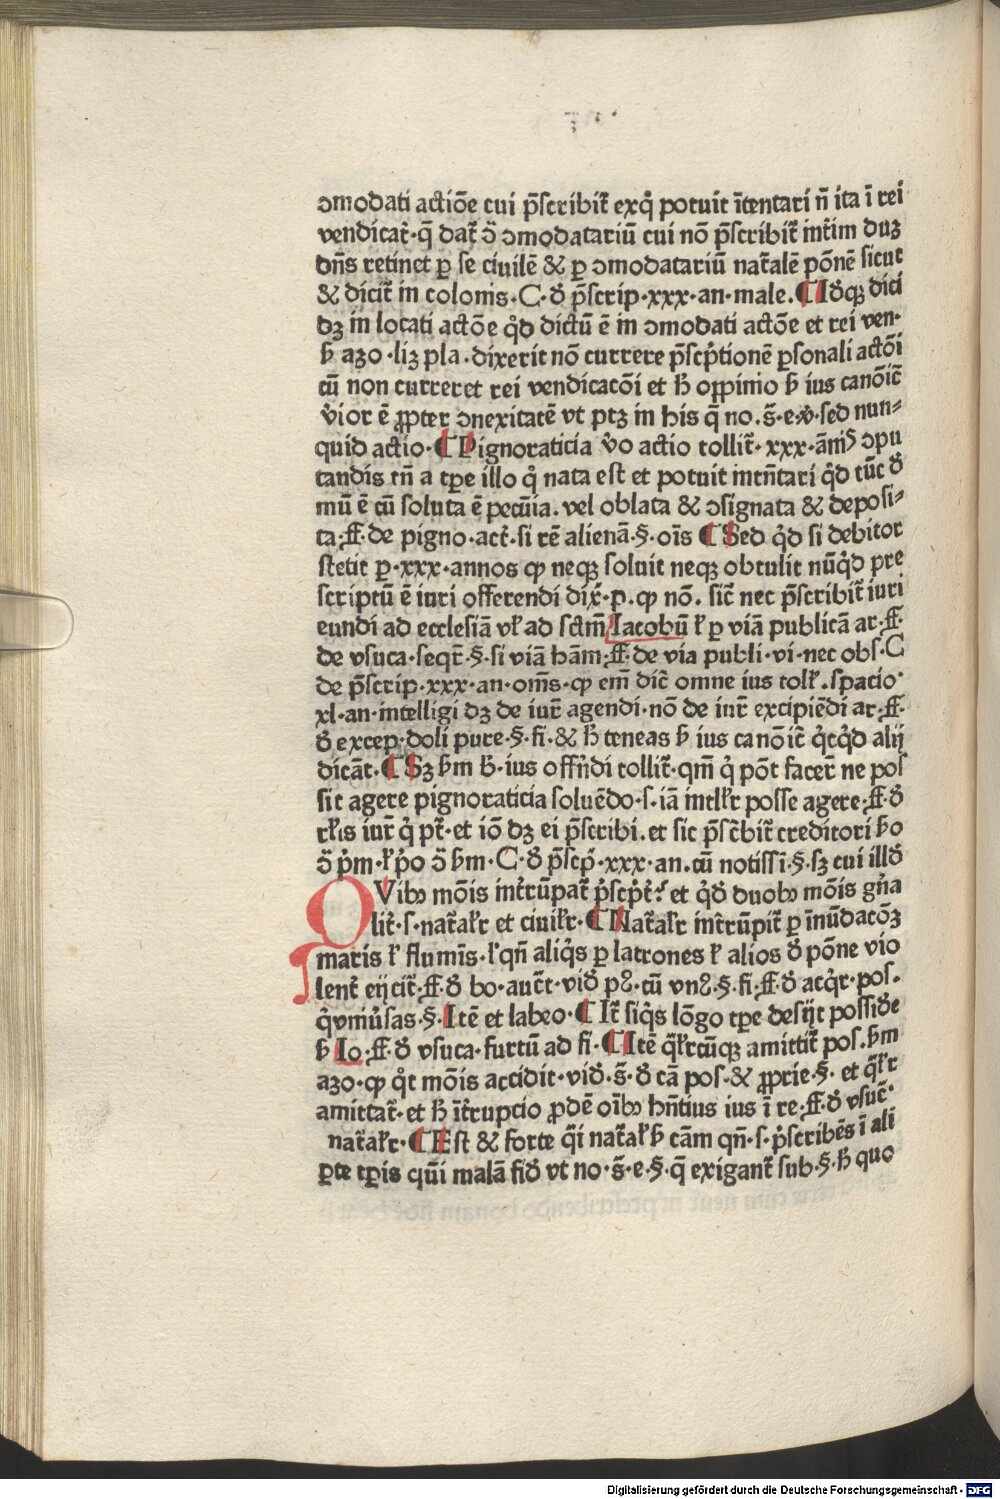 ɔmodati actiõe cui p̃scribit̃ exq̃ potuit ĩtentari ñ ita ĩ rei
vendicat̃·q̃ dat̃ ɔ̃ ɔmodatariũ cui nõ p̃scribit̃ int̃im duꝫ
dñs retinet ꝑ se ciuilẽ & ꝑ ɔmodatariũ nat̃alẽ põnẽ sicut
& dicit̃ in colonis·C·ð p̃scrip·xxx·an·male.¶Iðqꝫ dici
dꝫ in locati actõe qð dictũ ẽ in ɔmodati actõe et rei ven·
ƀ azo·liꝫ pla.dixerit nõ currere p̃scp̃tionẽ ꝑsonali actõi
cũ non curreret rei vendicacõi et ħ oppinio ƀ ius canõic̃
v̓ior ẽ ꝓpter ɔnexitatẽ vt ptꝫ in his q̃ no.s̃·e·v̓·sed nun⸗
quid actio·¶Pignoraticia v̓o actio tollit̃·xxx·ãnis ɔpu
tandis tñ a tꝑe illo q̓ nata est et potuit intñtari qð tũc ð
mũ ẽ cũ soluta ẽ pecũia.vel oblata & ɔsignata & deposi⸗
ta·ff·de pigno·act̃·si rẽ alienã·§·oĩs ¶Sed qð si debitor
stetit ꝑ·xxx·annos ꝙ neqꝫ soluit neqꝫ obtulit nũqð pre
scriptũ ẽ iuri offerendi dix̃·p·ꝙ nõ.sic̃ nec p̃scribit̃ iuri
eundi ad ecclesiã vł ad sctm̃ Iacobũ ł ꝑ viã publicã ar·ff·
de vsuca·seqr̃·§·si viã hãm·ff·de via publi·vi·nec obs·C
de p̃scrip·xxx·an·om̃s·ꝙ em̃ dic̃ omne ius toll.spacio·
xl·an·intelligi dꝫ de iur̃ agendi·nõ de iur̃ excipiẽdi ar·ff·
ð excep·doli pure·§·fi·& ħ teneas ƀ ius canõic̃ q̓cqð alij
dicãt·¶Sꝫ ƀm ƀ·ius offñdi tollit̃·qm̃ q̓ põt facer̃ ne pos
sit agere pignoraticia soluẽdo·s·iã intłr posse agere·ff·ð
rłis iur̃ q̓ pt̃·et iõ dꝫ ei p̃scribi.et sic p̃sc̃bit̃ creditori ƀo
ɔ̃ p̓m·ł p̓o ɔ̃ ƀm·C·ð p̃scp̃·xxx·an.cũ notissi·§·sꝫ cui illð
QVibꝫ mõis int̃rũpat̃ p̓scp̓t̃? et qð duobꝫ mõis gña
lit̃·s·nat̃ałr et ciuiłr·¶Nat̃ałr int̃rũpit̃ ꝑ ĩnũdacõꝫ
maris ł flumĩs·ł qñ aliq̓s ꝑ latrones ł alios ð põne vio
lent̃ eijcit̃·ff·ð bo·auc̃t·við pꝫ·cũ vnꝫ·§·fi·ff·ð acqr̃·pos.
q̓vmũsas·§·Itẽ et labeo·¶It̃ siq̓s lõgo tꝑe desijt possiðe
ƀ Io·ff·ð vsuca·furtũ ad fi·¶Itẽ q̃łrcũqꝫ amittit̃ pos.ƀm
azo·ꝙ q̓t mõis accidit·við·s̃·ð cã pos·& ꝓprie·§·et q̃łr
amittat̃·et ħ ĩt̃rupcio ꝓdẽ oĩbꝫ hñtius ius ĩ re·ff·ð vsuc̃·
nat̃ałr·¶Est & forte q̃i nat̃ałƀ cãm qñ·s·p̓scribẽs ĩ ali
ꝑte tꝑis qũi malã fið vt no·s̃·e·§·q̃ exigant̃ sub·§·ħ quo
Digitalisierung gefördert durch die Deutsche Forschungsgemeinschaft - DFG